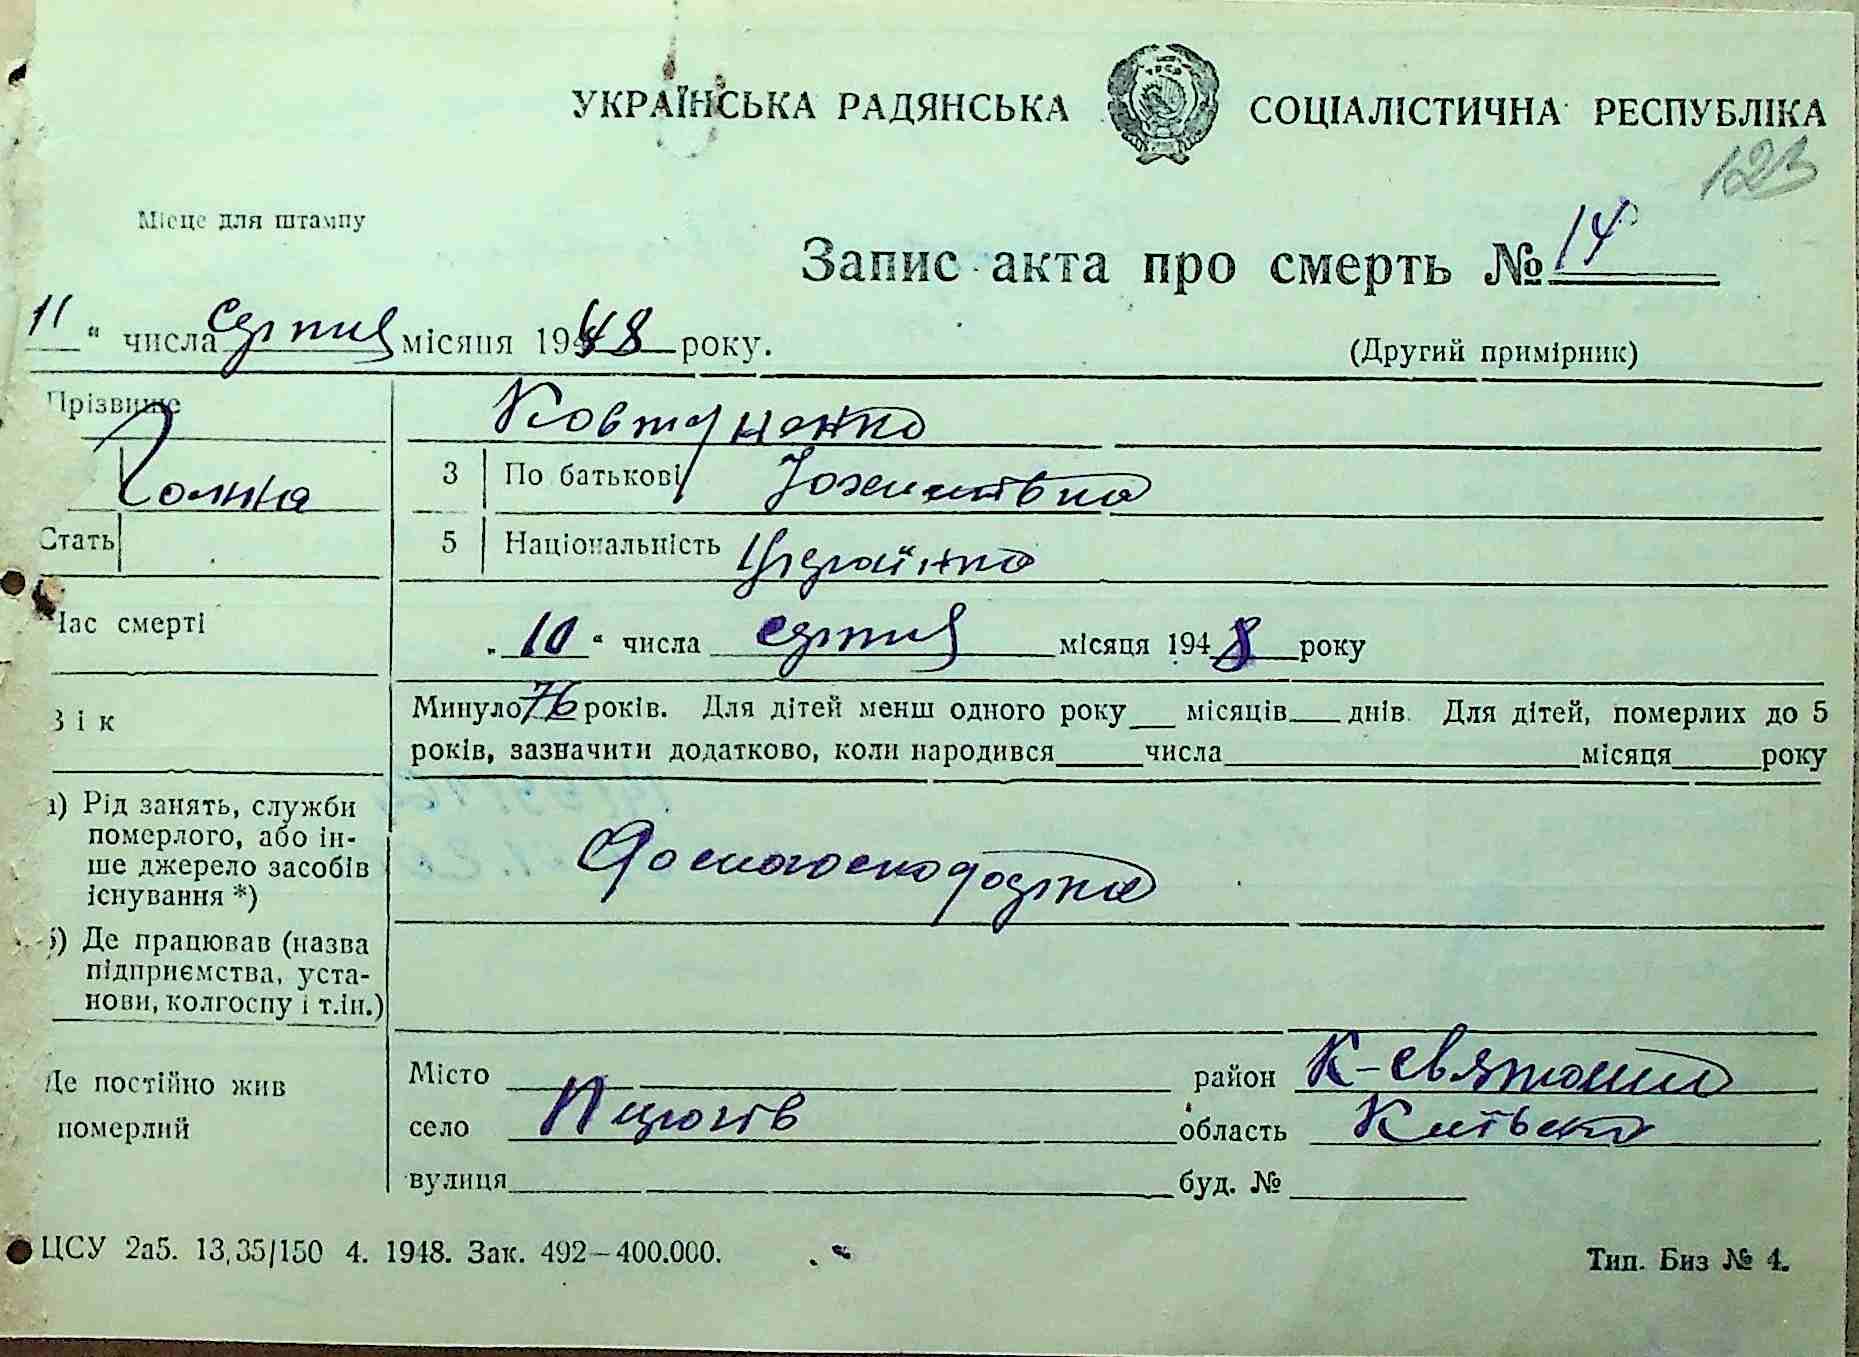 УКРАЇНСЬКА РАДЯНСЬКА СОЦІАЛІСТИЧНА РЕСПУБЛІКА
123
Місце для штампу
Запис акта про смерть № 14
11 " числа серпня місяця 1948 року.
(Другий примірник)
Прізвище Ковтуненко
Галина 3 По батькові Юхимівна
Стать 5 Національність Українка
Час смерті „ 10 " числа серпня місяця 1948 року
Вік Минуло 76 років. Для дітей менш одного року місяців днів. Для дітей, померлих до 5
років, зазначити додатково, коли народився числа місяця року
а) Рід занять, служби
померлого, або ін-
ше джерело засобів
існування *)
Домогосподарка
б) Де працював (назва
підприємства, уста-
нови, колгоспу і т.ін.)
Де постійно жив
померлий
Місто район К-Святошин
село Пирогів область Київська
вулиця буд. №
ЦСУ 2а5. 13,35/150 4. 1948. Зак. 492—400.000. Тип. Биз № 4.